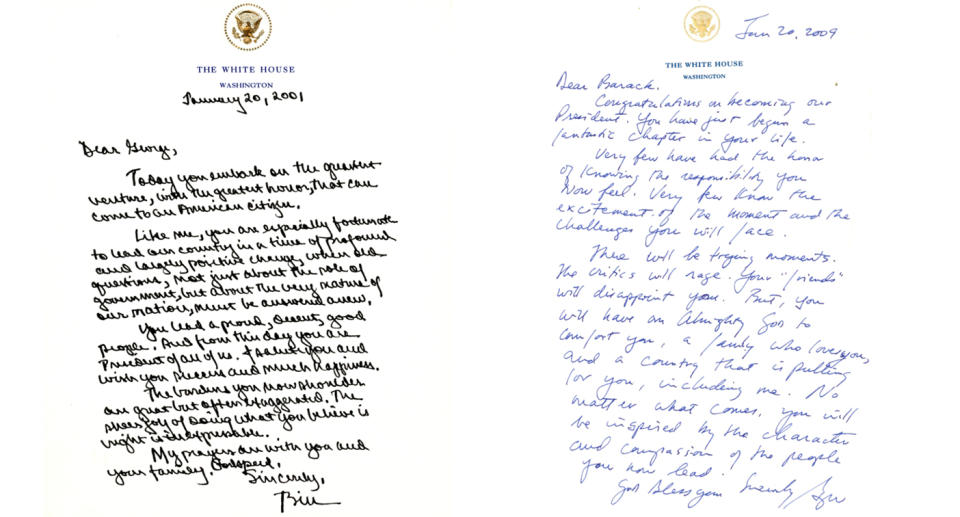 THE WHITE HOUSE
WASHINGTON
January 20, 2001
Dear George,
Today you embark on the greatest
venture, with the greatest honor, that can
come to an American citizen.
Like me, you are especially fortunate
to lead our country in a time of profound
and largely positive change, when old
questions, not just about the role of
government, but about the very nature of
our nation, must be answered anew.
You lead a proud, decent, good
people. And from this day you are
President of all of us. I salute you and
wish you success and much happiness.
The burdens you now shoulder
are great but often exaggerated. The
sheer joy of doing what you believe is
right is inexpressible.
My prayers are with you and
your family. Godspeed.
Sincerely,
Bill
Jan 20, 2009
THE WHITE HOUSE
WASHINGTON
Dear Barack.
Congratulations on becoming our
President. You have just begun a
fantastic chapter in your life.
Very few have had the honor
of knowing the responsibility you
now feel. Very few know the
excitement of the moment and the
challenges you will face.
There will be trying moments.
The critics will rage. Your "friends"
will disappoint you. But, you
will have an Almighty God to
comfort you, a family who loves you,
and a country that is pulling
for you, including me. No
matter what comes, you will
be inspired by the character
and compassion of the people
you now lead.
God bless you
Sincerely,